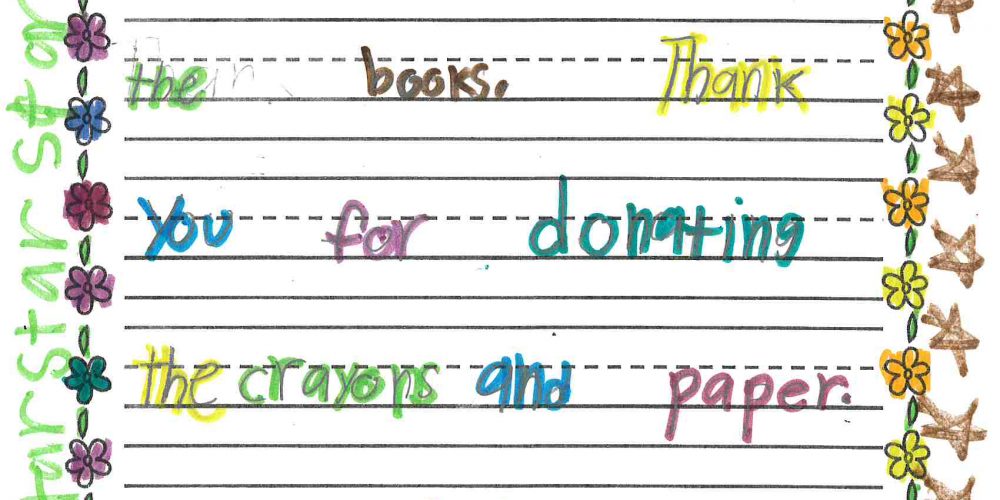 the books. Thank
you for donating
the crayons and paper.
star star